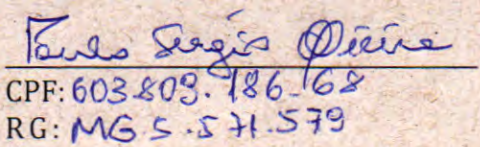 Paulo Sergio Oliveira
CPF: 603.809.186-68
RG: MG 5.571.579